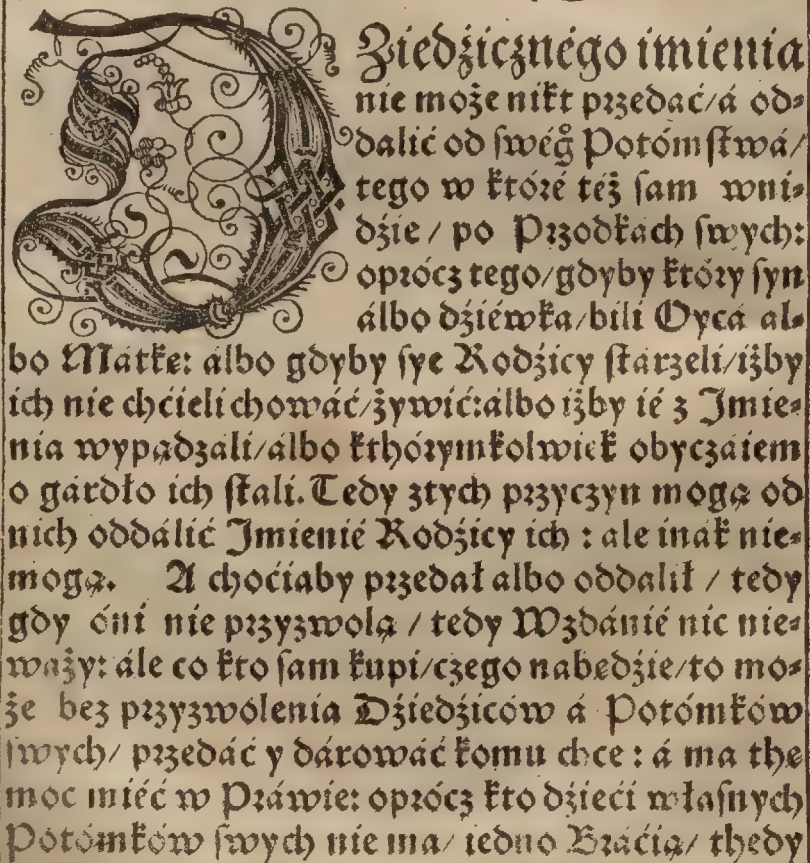 DZiedźicznégo imienia
nie może nikt przedáć/á od⸗
dalić od swégo̊ Potómstwá/
tego w któré téż sam wni⸗
dźie / po Przodkách swych:
oprócz tego/gdyby który syn
álbo dźiéwka/bili Oycá al⸗
bo Mátkę: álbo gdyby sye Rodźicy stárzeli/iżby
ich nie chćieli chowáć/żywić:álbo iżby ié z Imie⸗
nia wypądzáli/álbo kthórymkolwiek obyczáiem
o gárdło ich stali. Tedy ztych przyczyn mogą od
nich oddálić Imienié Rodźicy ich : ale inák nie⸗
mogą. A choćiaby przedał albo oddalił / tedy
gdy óni nie przyzwolą / tedy Wzdánié nic nie⸗
waży: ále co kto sam kupi/czego nabędźie/to mo⸗
że bez przyzwolenia Dźiedźiców á Potómków
swych/ przedáć y dárowáć komu chce : á ma the
moc miéć w Práwie: oprócz kto dźieći własnych
Potómków swych nie ma/ iedno Bráćią/ thedy